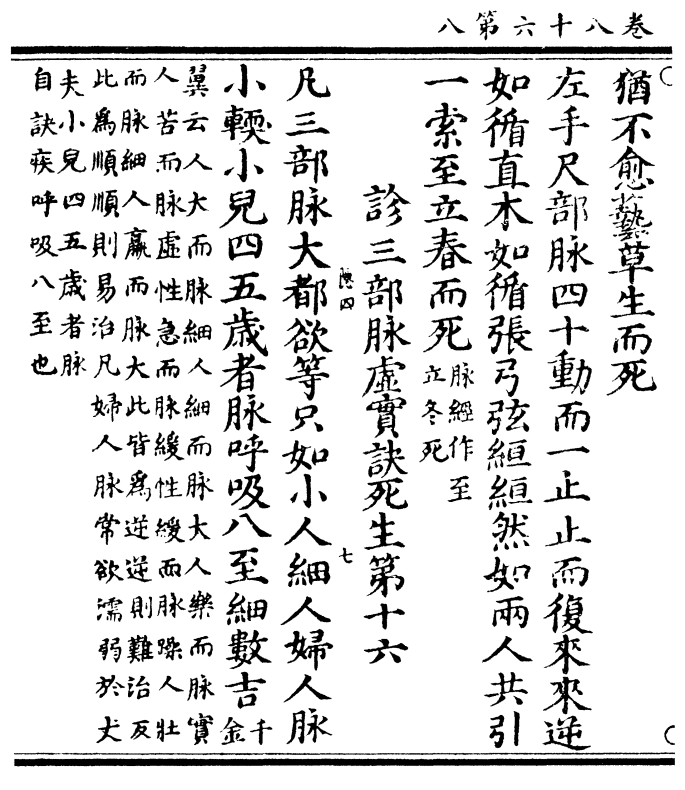 卷八十六第八
猶不愈藝草生而死
左手尺部脉四十動而一止止而復來來逆
如循直木如循張弓弦絚絚然如兩人共引
一索至立春而死
脉經作至
立冬死
診三部脉虛實訣死生第十六
四
七
凡三部脉大都欲等只如小人細人婦人脉
小輭小兒四五歲者脉呼吸八至細數吉
千
金
翼云人大而脉細人細而脉大人樂而脉實
人苦而脉虛性急而脉緩性緩而脉躁人壯
而脉細人羸而脉大此皆爲逆逆則難治反
此爲順順則易治凡婦人脉常欲濡弱於丈
夫小兒四五歲者脉
自訣疾呼吸八至也